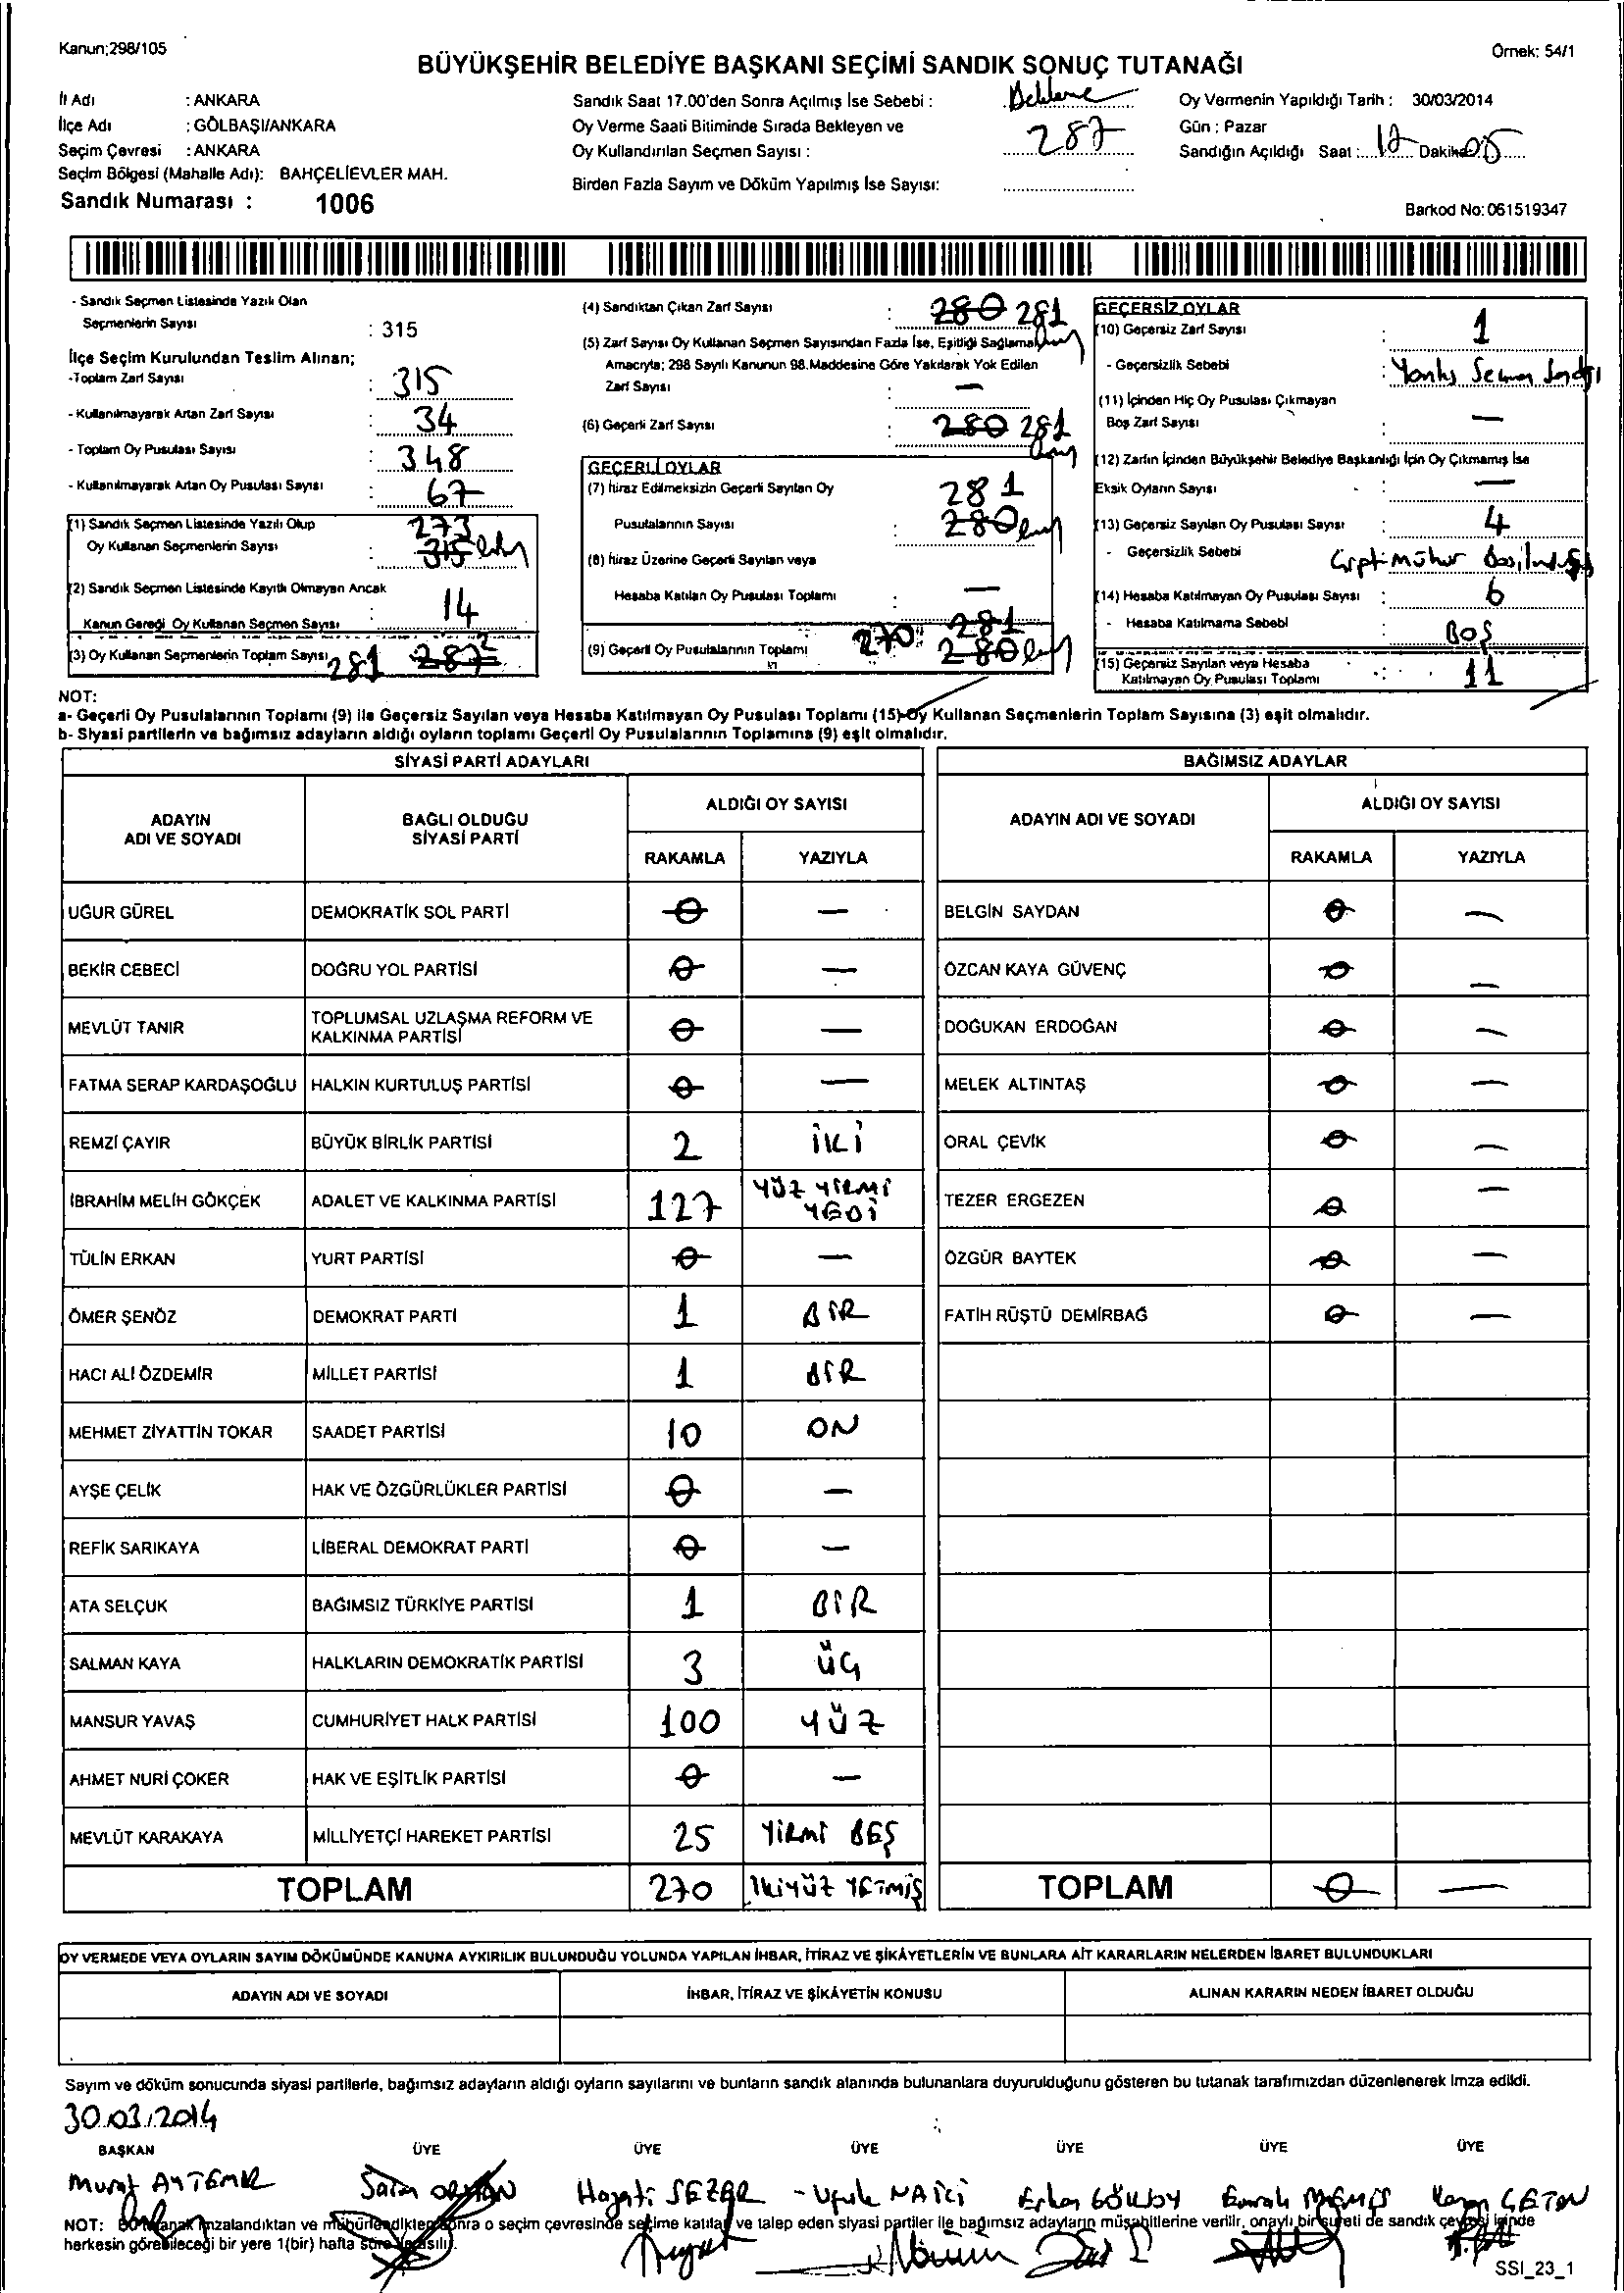 Kanun;298/105
Örnek: 54/1
BÜYÜKŞEHİR BELEDİYE BAŞKANI SEÇİMİ SANDIK SONUÇ TUTANAĞI
İl Adı : ANKARA
İlçe Adı : GÖLBAŞI/ANKARA
Seçim Çevresi : ANKARA
Seçim Bölgesi (Mahalle Adı): BAHÇELİEVLER MAH.
Sandık Numarası : 1006
Sandık Saat 17.00'den Sonra Açılmış İse Sebebi :
Oy Verme Saati Bitiminde Sırada Bekleyen ve
Oy Kullandırılan Seçmen Sayısı : 287
Birden Fazla Sayım ve Döküm Yapılmış İse Sayısı:
Oy Vermenin Yapıldığı Tarih : 30/03/2014
Gün : Pazar
Sandığın Açıldığı Saat : 17 Dakika 05
Barkod No: 061519347
- Sandık Seçmen Listesinde Yazılı Olan
Seçmenlerin Sayısı : 315
İlçe Seçim Kurulundan Teslim Alınan;
-Toplam Zarf Sayısı : 315
- Kullanılmayarak Artan Zarf Sayısı : 34
- Toplam Oy Pusulası Sayısı : 348
- Kullanılmayarak Artan Oy Pusulası Sayısı : 67
(1) Sandık Seçmen Listesinde Yazılı Olup 273
Oy Kullanan Seçmenlerin Sayısı : 315
(2) Sandık Seçmen Listesinde Kayıtlı Olmayan Ancak
Kanun Gereği Oy Kullanan Seçmen Sayısı : 14
(3) Oy Kullanan Seçmenlerin Toplam Sayısı 281 287
(4) Sandıktan Çıkan Zarf Sayısı : 280 281
(5) Zarf Sayısı Oy Kullanan Seçmen Sayısından Fazla İse, Eşitliği Sağlamak
Amacıyla; 298 Sayılı Kanunun 98.Maddesine Göre Yakılarak Yok Edilen
Zarf Sayısı : —
(6) Geçerli Zarf Sayısı : 280 281
GEÇERLİ OYLAR
(7) İtiraz Edilmeksizin Geçerli Sayılan Oy 281
Pusulalarının Sayısı : 280
(8) İtiraz Üzerine Geçerli Sayılan veya
Hesaba Katılan Oy Pusulası Toplamı : —
281
(9) Geçerli Oy Pusulalarının Toplamı 270 280
GEÇERSİZ OYLAR
(10) Geçersiz Zarf Sayısı : 1
- Geçersizlik Sebebi :
(11) İçinden Hiç Oy Pusulası Çıkmayan
Boş Zarf Sayısı : —
(12) Zarfın İçinden Büyükşehir Belediye Başkanlığı İçin Oy Çıkmamış İse
Eksik Oyların Sayısı : —
(13) Geçersiz Sayılan Oy Pusulası Sayısı : 4
- Geçersizlik Sebebi
(14) Hesaba Katılmayan Oy Pusulası Sayısı : 6
- Hesaba Katılmama Sebebi BOŞ
(15) Geçersiz Sayılan veya Hesaba
Katılmayan Oy Pusulası Toplamı : 11
NOT:
a- Geçerli Oy Pusulalarının Toplamı (9) ile Geçersiz Sayılan veya Hesaba Katılmayan Oy Pusulası Toplamı (15) Oy Kullanan Seçmenlerin Toplam Sayısına (3) eşit olmalıdır.
b- Siyasi partilerin ve bağımsız adayların aldığı oyların toplamı Geçerli Oy Pusulalarının Toplamına (9) eşit olmalıdır.
SİYASİ PARTİ ADAYLARI
ADAYIN ADI VE SOYADI
BAĞLI OLDUĞU SİYASİ PARTİ
ALDIĞI OY SAYISI
RAKAMLA YAZIYLA
UĞUR GÜREL DEMOKRATİK SOL PARTİ 0 —
BEKİR CEBECİ DOĞRU YOL PARTİSİ 0 —
MEVLÜT TANIR TOPLUMSAL UZLAŞMA REFORM VE KALKINMA PARTİSİ 0 —
FATMA SERAP KARDAŞOĞLU HALKIN KURTULUŞ PARTİSİ 0 —
REMZİ ÇAYIR BÜYÜK BİRLİK PARTİSİ 2 İKİ
İBRAHİM MELİH GÖKÇEK ADALET VE KALKINMA PARTİSİ 127 YÜZ YİRMİ YEDİ
TÜLİN ERKAN YURT PARTİSİ 0 —
ÖMER ŞENÖZ DEMOKRAT PARTİ 1 BİR
HACI ALİ ÖZDEMİR MİLLET PARTİSİ 1 BİR
MEHMET ZİYATTİN TOKAR SAADET PARTİSİ 10 ON
AYŞE ÇELİK HAK VE ÖZGÜRLÜKLER PARTİSİ 0 —
REFİK SARIKAYA LİBERAL DEMOKRAT PARTİ 0 —
ATA SELÇUK BAĞIMSIZ TÜRKİYE PARTİSİ 1 BİR
SALMAN KAYA HALKLARIN DEMOKRATİK PARTİSİ 3 ÜÇ
MANSUR YAVAŞ CUMHURİYET HALK PARTİSİ 100 YÜZ
AHMET NURİ ÇOKER HAK VE EŞİTLİK PARTİSİ 0 —
MEVLÜT KARAKAYA MİLLİYETÇİ HAREKET PARTİSİ 25 YİRMİ BEŞ
TOPLAM 270 İKİYÜZ YETMİŞ
BAĞIMSIZ ADAYLAR
ADAYIN ADI VE SOYADI
ALDIĞI OY SAYISI
RAKAMLA YAZIYLA
BELGİN SAYDAN 0 —
ÖZCAN KAYA GÜVENÇ 0 —
DOĞUKAN ERDOĞAN 0 —
MELEK ALTINTAŞ 0 —
ORAL ÇEVİK 0 —
TEZER ERGEZEN 0 —
ÖZGÜR BAYTEK 0 —
FATİH RÜŞTÜ DEMİRBAĞ 0 —
TOPLAM 0 —
OY VERMEDE VEYA OYLARIN SAYIM DÖKÜMÜNDE KANUNA AYKIRILIK BULUNDUĞU YOLUNDA YAPILAN İHBAR, İTİRAZ VE ŞİKÂYETLERİN VE BUNLARA AİT KARARLARIN NELERDEN İBARET BULUNDUKLARI
ADAYIN ADI VE SOYADI
İHBAR, İTİRAZ VE ŞİKÂYETİN KONUSU
ALINAN KARARIN NEDEN İBARET OLDUĞU
Sayım ve döküm sonucunda siyasi partilerle, bağımsız adayların aldığı oyların sayılarını ve bunların sandık alanında bulunanlara duyurulduğunu gösteren bu tutanak tarafımızdan düzenlenerek imza edildi.
30.03.2014
BAŞKAN ÜYE ÜYE ÜYE ÜYE ÜYE ÜYE
Murat AYTEMUR Hayati SEZER
NOT: Bu tutanak imzalandıktan ve mühürlendikten sonra o seçim çevresinde seçime katılan ve talep eden siyasi partiler ile bağımsız adayların müşahitlerine verilir, onaylı bir sureti de sandık çevresi içinde
herkesin görebileceği bir yere 1(bir) hafta süre ile asılır.
SSI_23_1